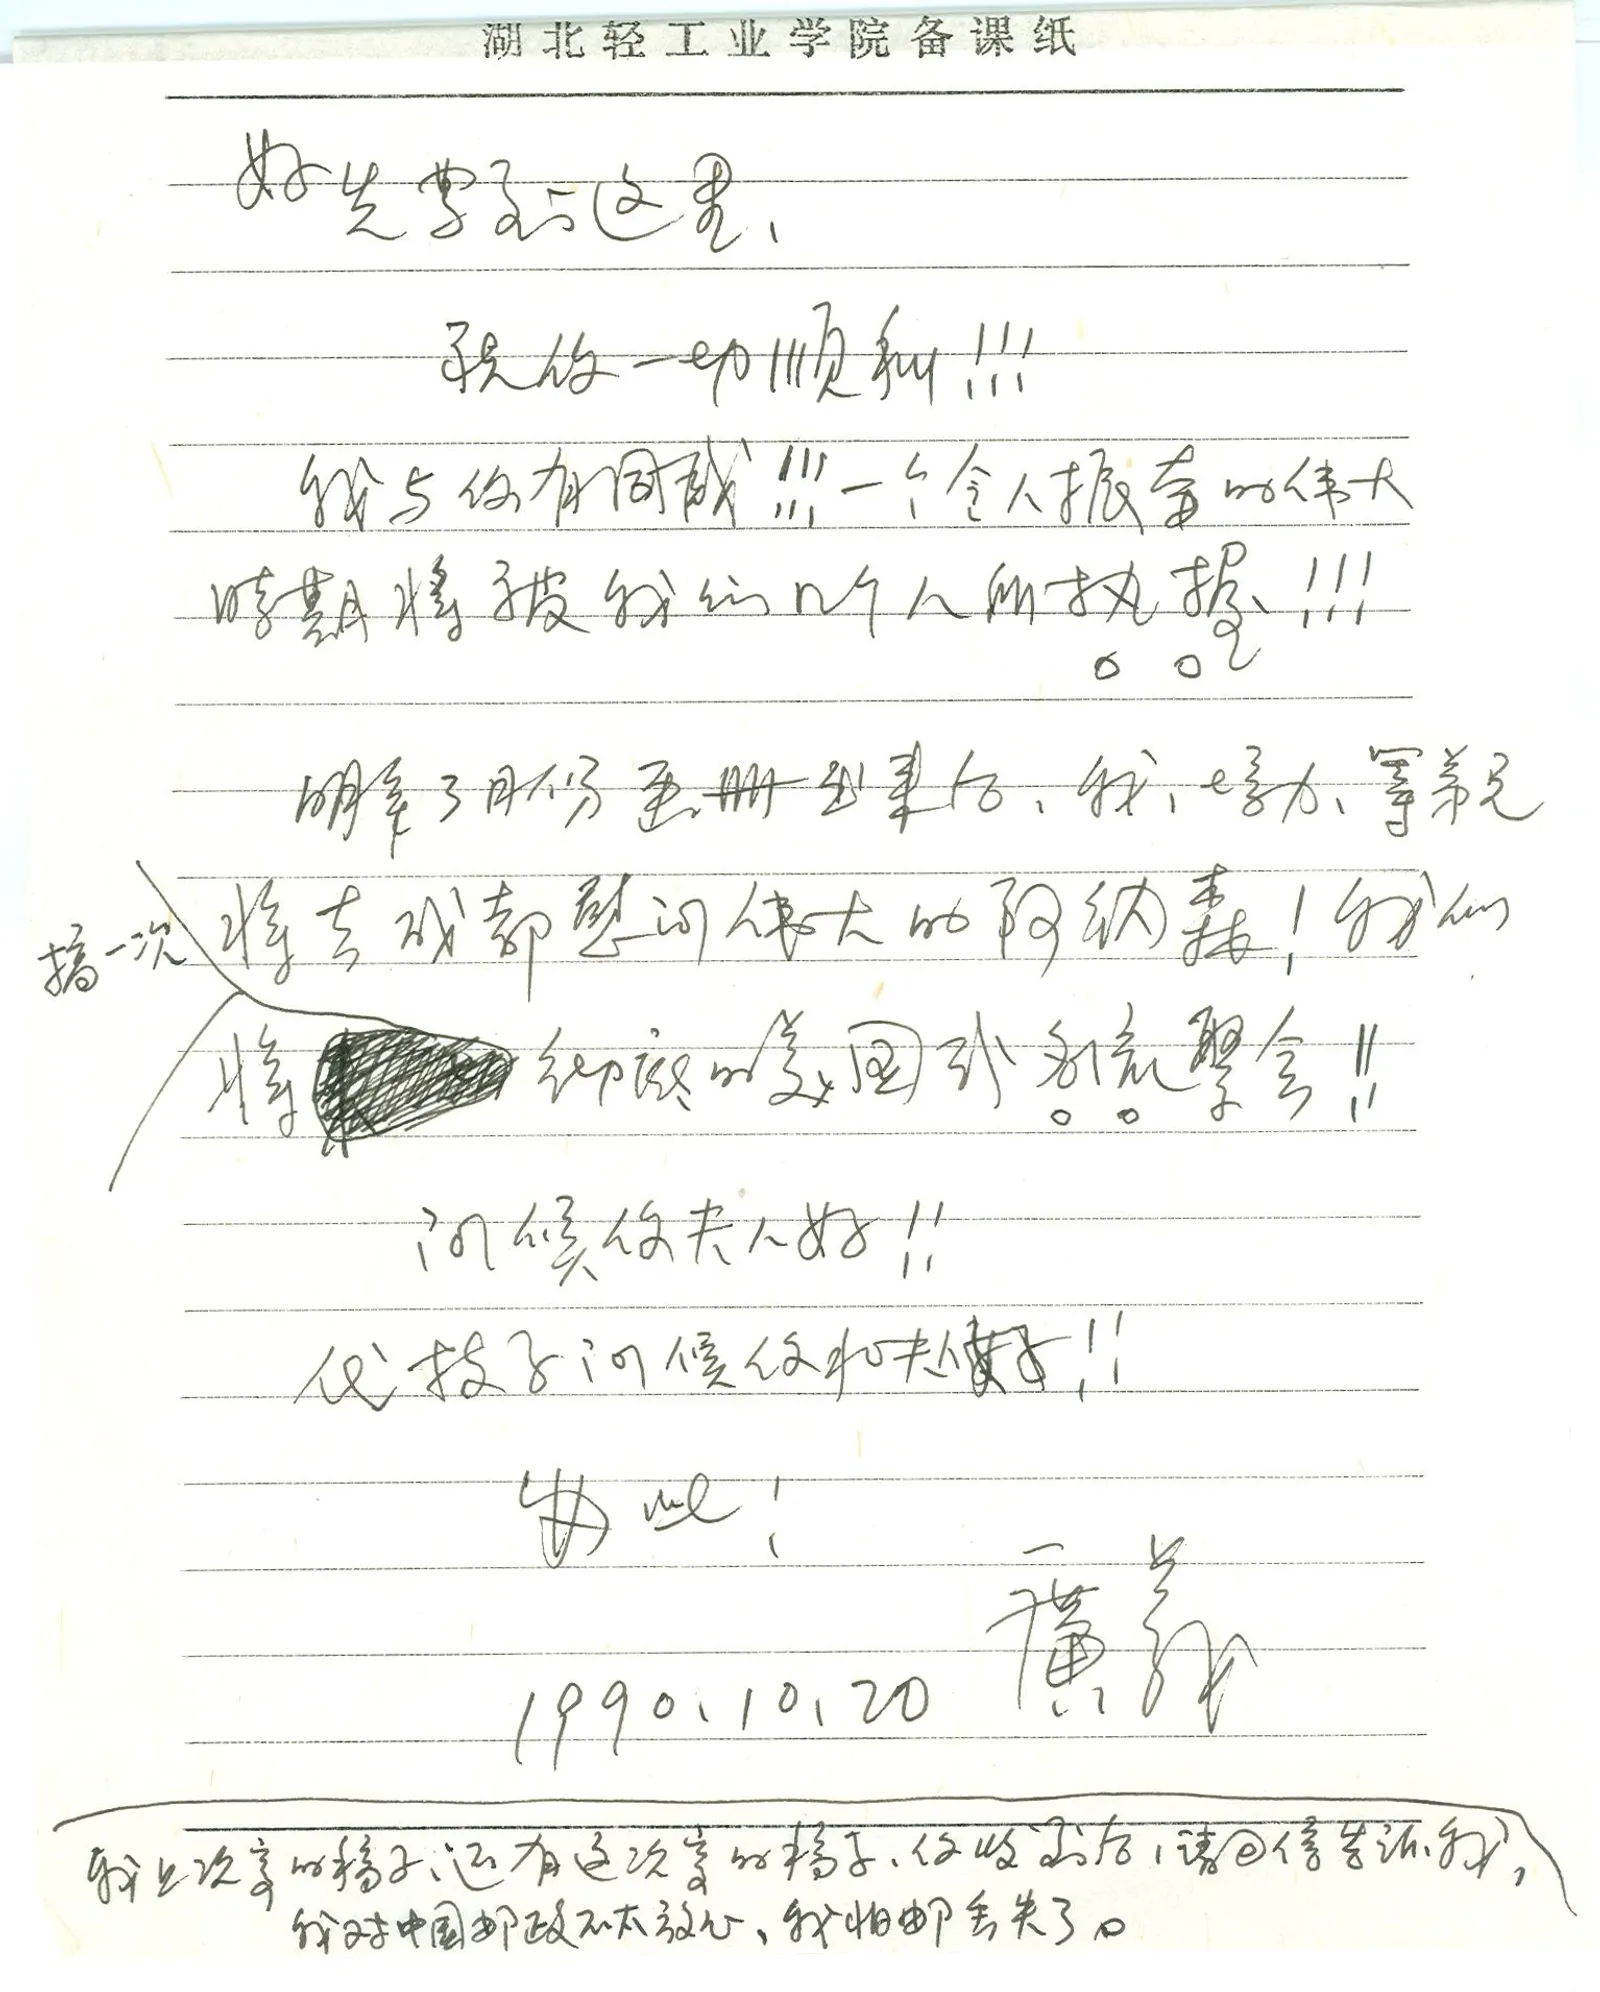 湖北轻工业学院备课纸
好先学到这里、
祝你一切顺利!!!
我与你有同感!!!一个令人振奋的伟大
时期将被我们几个人所执握、!!!
明年3月份画册出来后、我、培力、等弟兄
将去成都慰问伟大的阿纳森!我们
搞一次
将 彻底的美国式的聚会!!
问候你夫人好!!
代技子问候你和夫人好!!
为此!
广义
1990.10.20
我上次寄的稿子、还有这次寄的稿子、你收到后、请回信告诉我,
我对中国邮政不太放心、我怕邮丢失了。